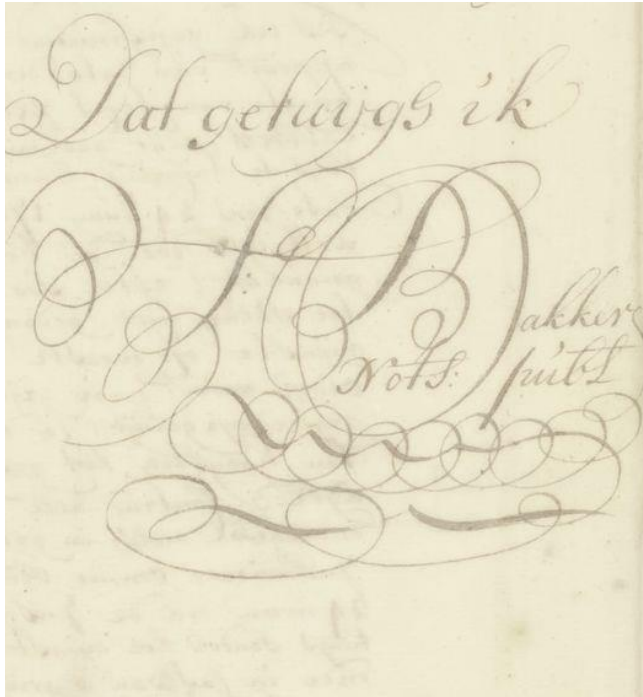 Dat getuijgs ik
J: Bakker
Nots: publ